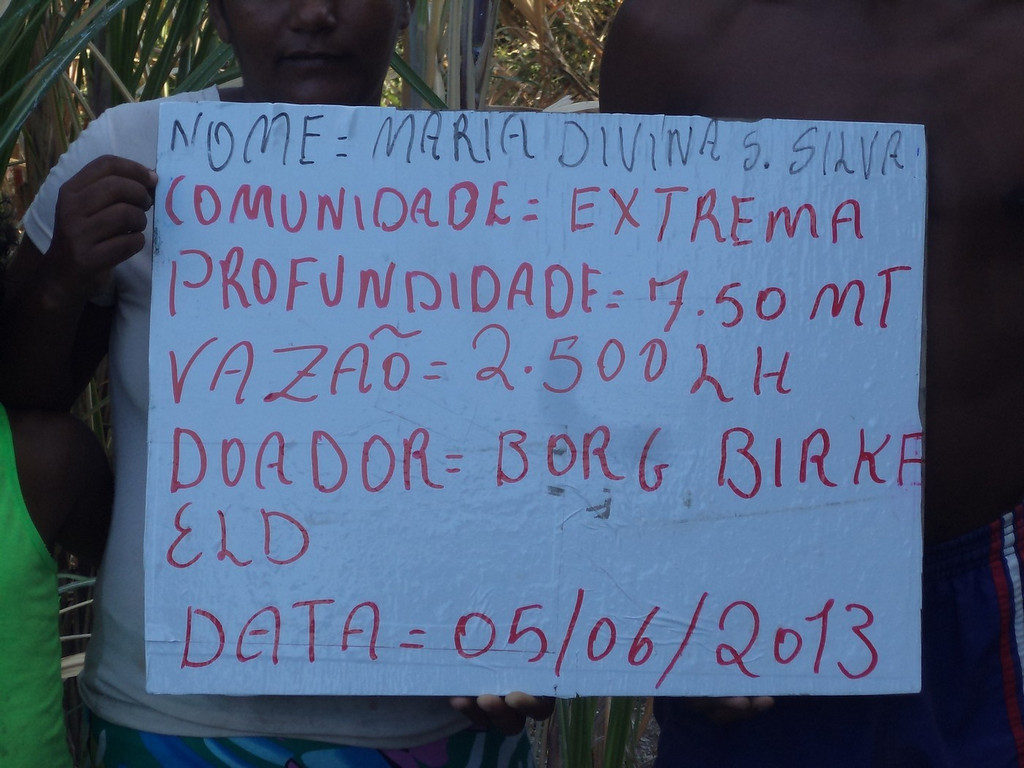 NOME = MARIA DIVINA S. SILVA
COMUNIDADE = EXTREMA
PROFUNDIDADE = 7.50 MT
VAZÃO = 2.500 LH
DOADOR = BORG BIRKE
ELD
DATA = 05/06/2013